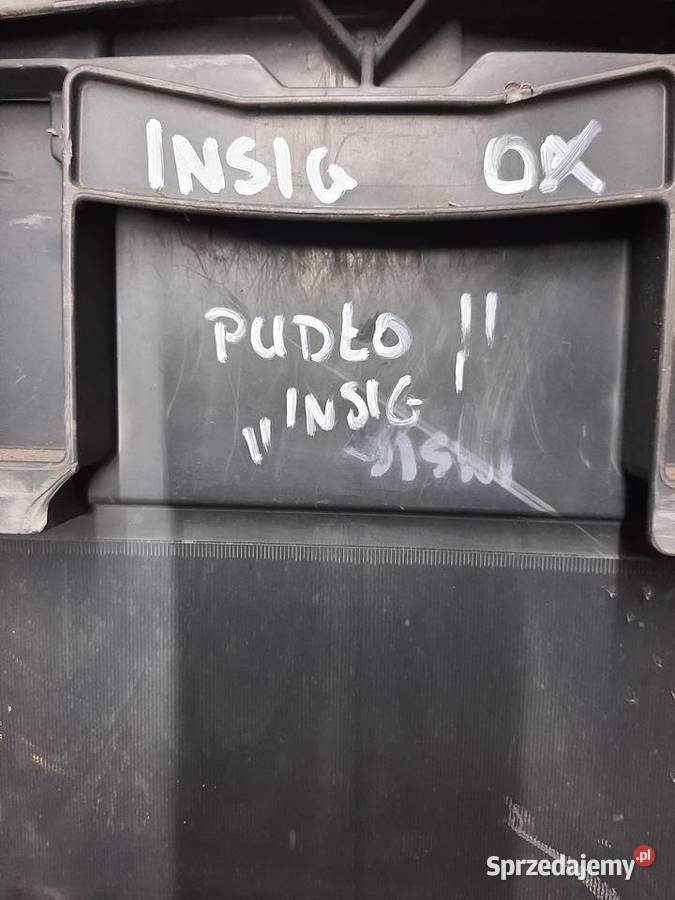 INSIG OX
PUDŁO !!
"INSIG
INSIG
Sprzedajemy.pl